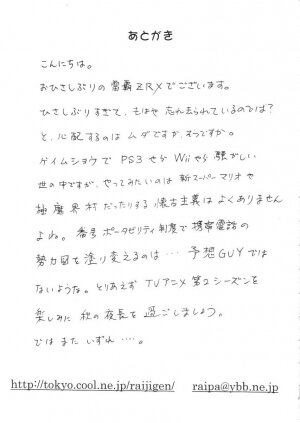 あとがき
こんにちは。
おひさしぶりの雷覇ZRXでございます。
ひさしぶりすぎて、もはや忘れ去られているのでは?
と、心配するのはムダですか、そうですか。
ゲイムショウでPS3やらWiiやら騒がしい
世の中ですが、やってみたいのは新スーパーマリオや
極魔界村だったりする懐古主義はよくありません
よね。番号ポータビリティ制度で携帯電話の
勢力図を塗り変えるのは…予想GUYでは
ないような。とりあえずTVアニメ第2シーズンを
楽しみに秋の夜長を過ごしましょう。
ではまたいずれ…。
http://tokyo.cool.ne.jp/raijigen/ raipa@ybb.ne.jp